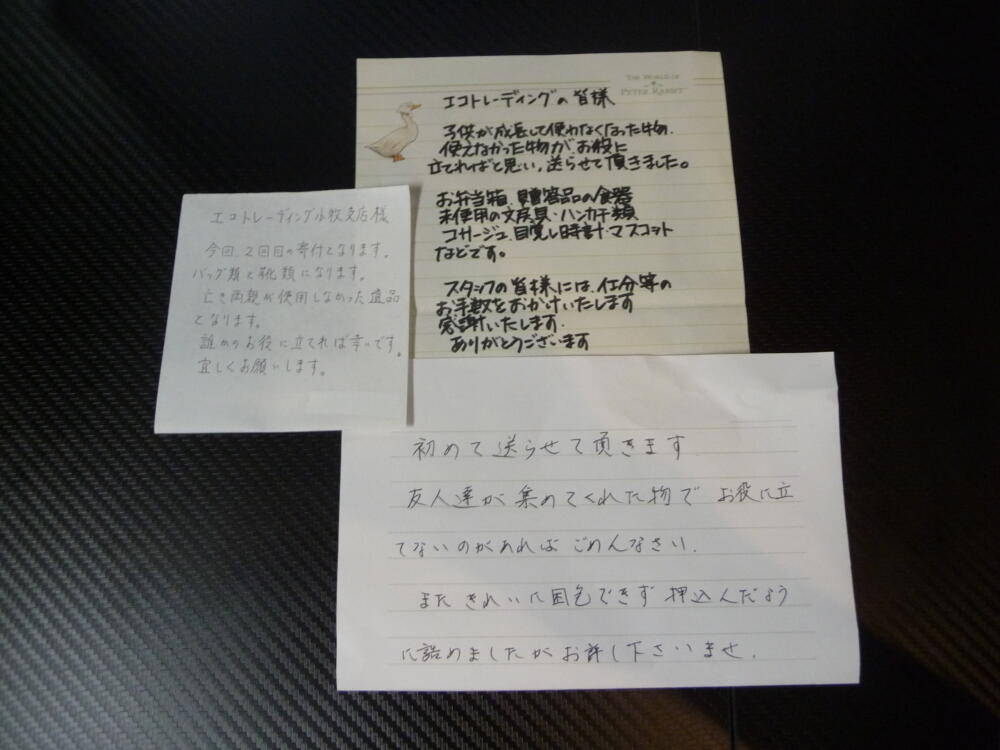 THE WORLD OF
PETER RABBIT
エコトレーディングの皆様
子供が成長して使わなくなった物、
使えなかった物がお役に
立てればと思い、送らせて頂きました。
お弁当箱、贈答品の食器
未使用の文房具・ハンカチ類
コサージュ、目覚し時計・マスコット
などです。
スタッフの皆様には、仕分等の
お手数をおかけいたします
感謝いたします。
ありがとうございます
エコトレーディング小牧支店様
今回、2回目の寄付となります。
バッグ類と靴類になります。
亡き両親が使用しなかった遺品
となります。
誰かのお役に立てれば幸いです。
宜しくお願いします。
初めて送らせて頂きます
友人達が集めてくれた物で お役に立
てないのがあれば ごめんなさい.
また きれいに困包できず 押込んだよう
に詰めましたが お許し下さいませ.